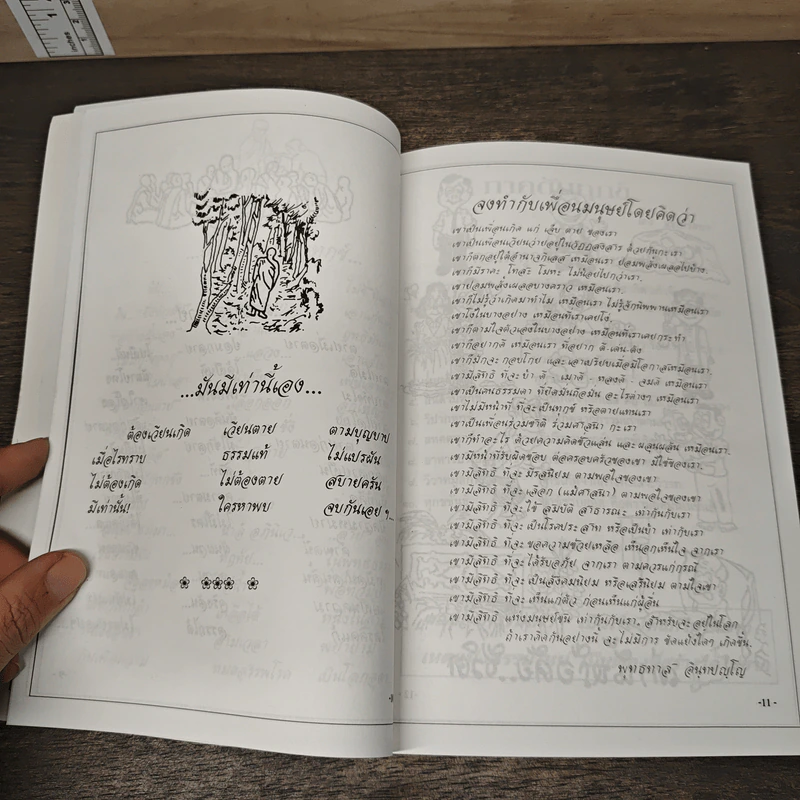 ...มันมีเท่านี้เอง...
ต้องเวียนเกิด เวียนตาย ตามบุญบาป
เมื่อไรทราบ ธรรมแท้ ไม่แปรผัน
ไม่ต้องเกิด ไม่ต้องตาย สบายครัน
มีเท่านั้น! ใครหาพบ จบกันเอย ฯ
จงทำกับเพื่อนมนุษย์โดยคิดว่า
เขาเป็นเพื่อนเกิด แก่ เจ็บ ตาย ของเรา
เขาเป็นเพื่อนเวียนว่ายอยู่ในวัฏฏสงสาร ด้วยกันกะเรา
เขาก็ตกอยู่ใต้อำนาจกิเลส เหมือนเรา ย่อมพลั้งเผลอไปบ้าง
เขาก็มีราคะ โทสะ โมหะ ไม่น้อยไปกว่าเรา.
เขาย่อมพลั้งเผลอบางคราว เหมือนเรา.
เขาก็ไม่รู้ว่าเกิดมาทำไม เหมือนเรา ไม่รู้จักนิพพานเหมือนเรา
เขาโง่ในบางอย่าง เหมือนที่เราเคยโง่.
เขาก็ตามใจตัวเองในบางอย่าง เหมือนที่เราเคยกระทำ
เขาก็อยากดี เหมือนเรา ที่อยาก ดี-เด่น-ดัง
เขาก็มักจะ กอบโกย และ เอาเปรียบเมื่อมีโอกาสเหมือนเรา.
เขามีสิทธิ ที่จะ บ้า ดี - เมาดี - หลงดี - จมดี เหมือนเรา
เขาเป็นคนธรรมดา ที่ยึดมั่นถือมั่น อะไรต่างๆ เหมือนเรา
เขาไม่มีหน้าที่ ที่จะเป็นทุกข์ หรือตายแทนเรา
เขาเป็นเพื่อนร่วมชาติ ร่วมศาสนา กะเรา
เขาก็ทำอะไร ด้วยความคิดชั่วแล่น และ ผลุนผลัน เหมือนเรา.
เขามีหน้าที่รับผิดชอบ ต่อครอบครัวของเขา มิใช่ของเรา.
เขามีสิทธิ ที่จะ มีรสนิยม ตามพอใจของเขา
เขามีสิทธิ ที่จะ เลือก (แม้ศาสนา) ตามพอใจของเขา
เขามีสิทธิ ที่จะ ใช้ สมบัติ สาธารณะ เท่ากันกับเรา
เขามีสิทธิ ที่จะ เป็นโรคประสาท หรือเป็นบ้า เท่ากับเรา
เขามีสิทธิ ที่จะ ขอความช่วยเหลือ เห็นอกเห็นใจ จากเรา
เขามีสิทธิ ที่จะ ได้รับอภัย จากเรา ตามควรแก่กรณี
เขามีสิทธิ ที่จะ เป็นสังคมนิยม หรือเสรีนิยม ตามใจเขา
เขามีสิทธิ ที่จะ เห็นแก่ตัว ก่อนเห็นแก่ผู้อื่น
เขามีสิทธิ แห่งมนุษย์ชน เท่ากันกับเรา, สำหรับจะอยู่ในโลก
ถ้าเราคิดกันอย่างนี้ จะไม่มีการ ขัดแย้งใดๆ เกิดขึ้น.
พุทธทาส อินทปญฺโญ
-11-